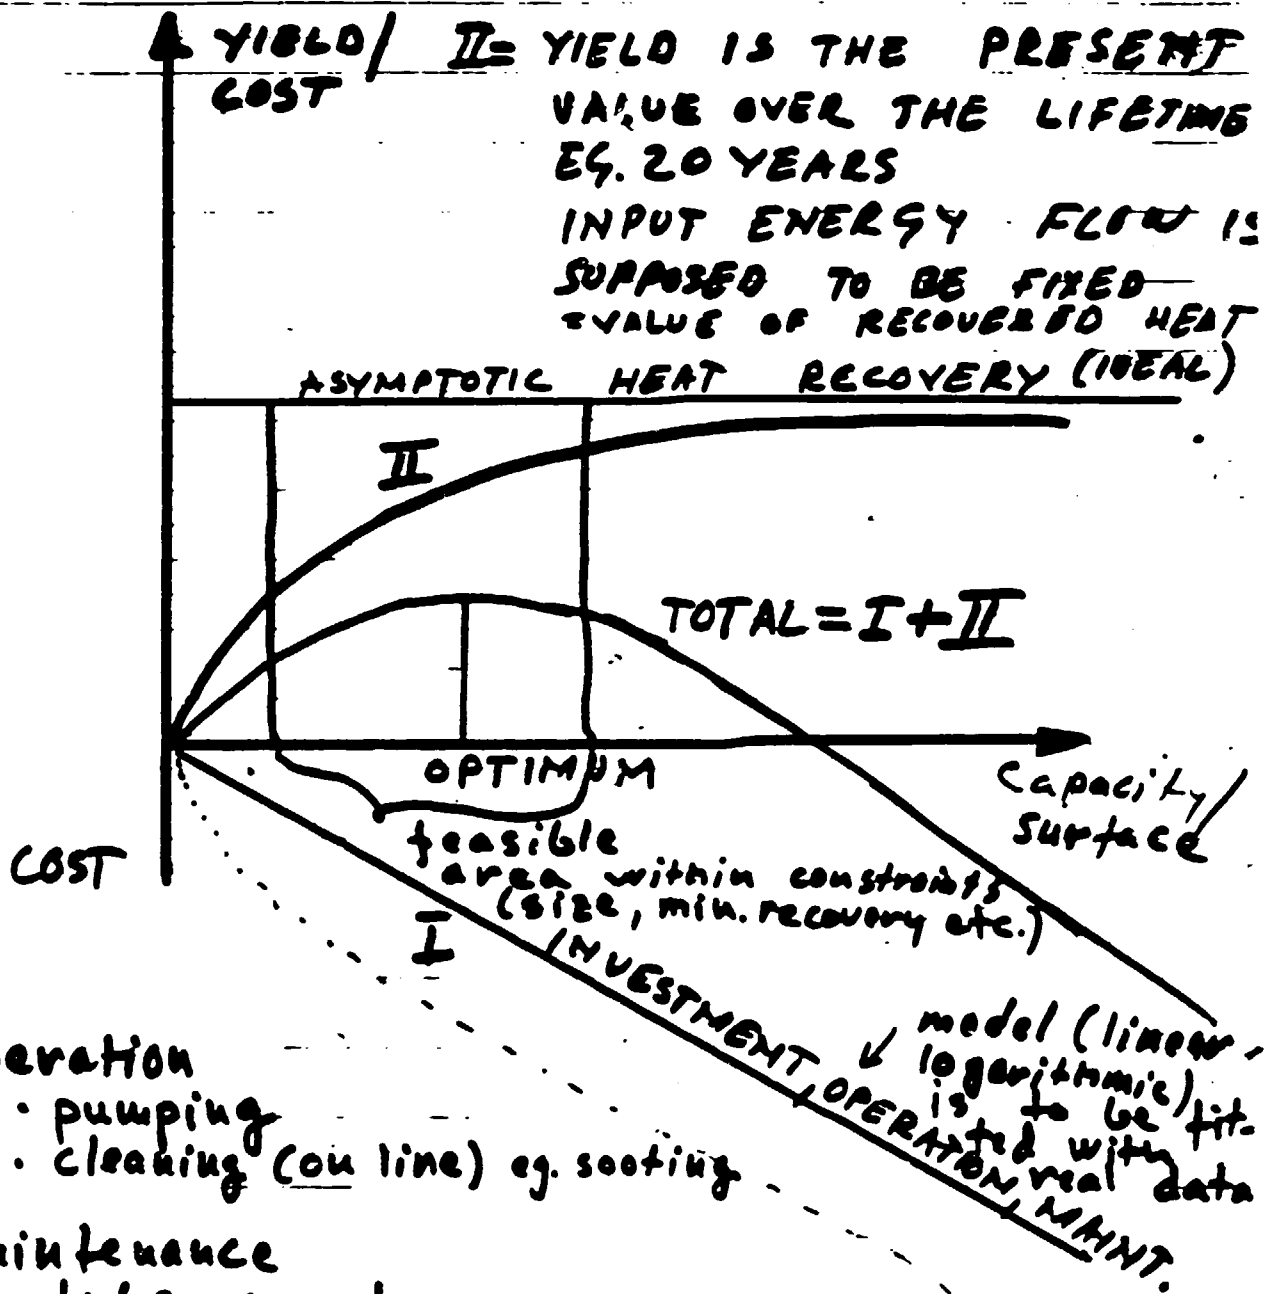 YIELD/
COST
II = YIELD IS THE PRESENT
VALUE OVER THE LIFETIME
EG. 20 YEARS
INPUT ENERGY FLOW IS
SUPPOSED TO BE FIXED
=VALUE OF RECOVERED HEAT
ASYMPTOTIC HEAT RECOVERY (IDEAL)
II
TOTAL = I + II
OPTIMUM
Capacity/
Surface
feasible
area within constraints
(size, min. recovery etc.)
COST
I
INVESTMENT, OPERATION, MAINT.
model (linear,
logarithmic)
is to be fit-
ted with
real data
eration
· pumping
· cleaning (on line) eg. sooting
aintenance